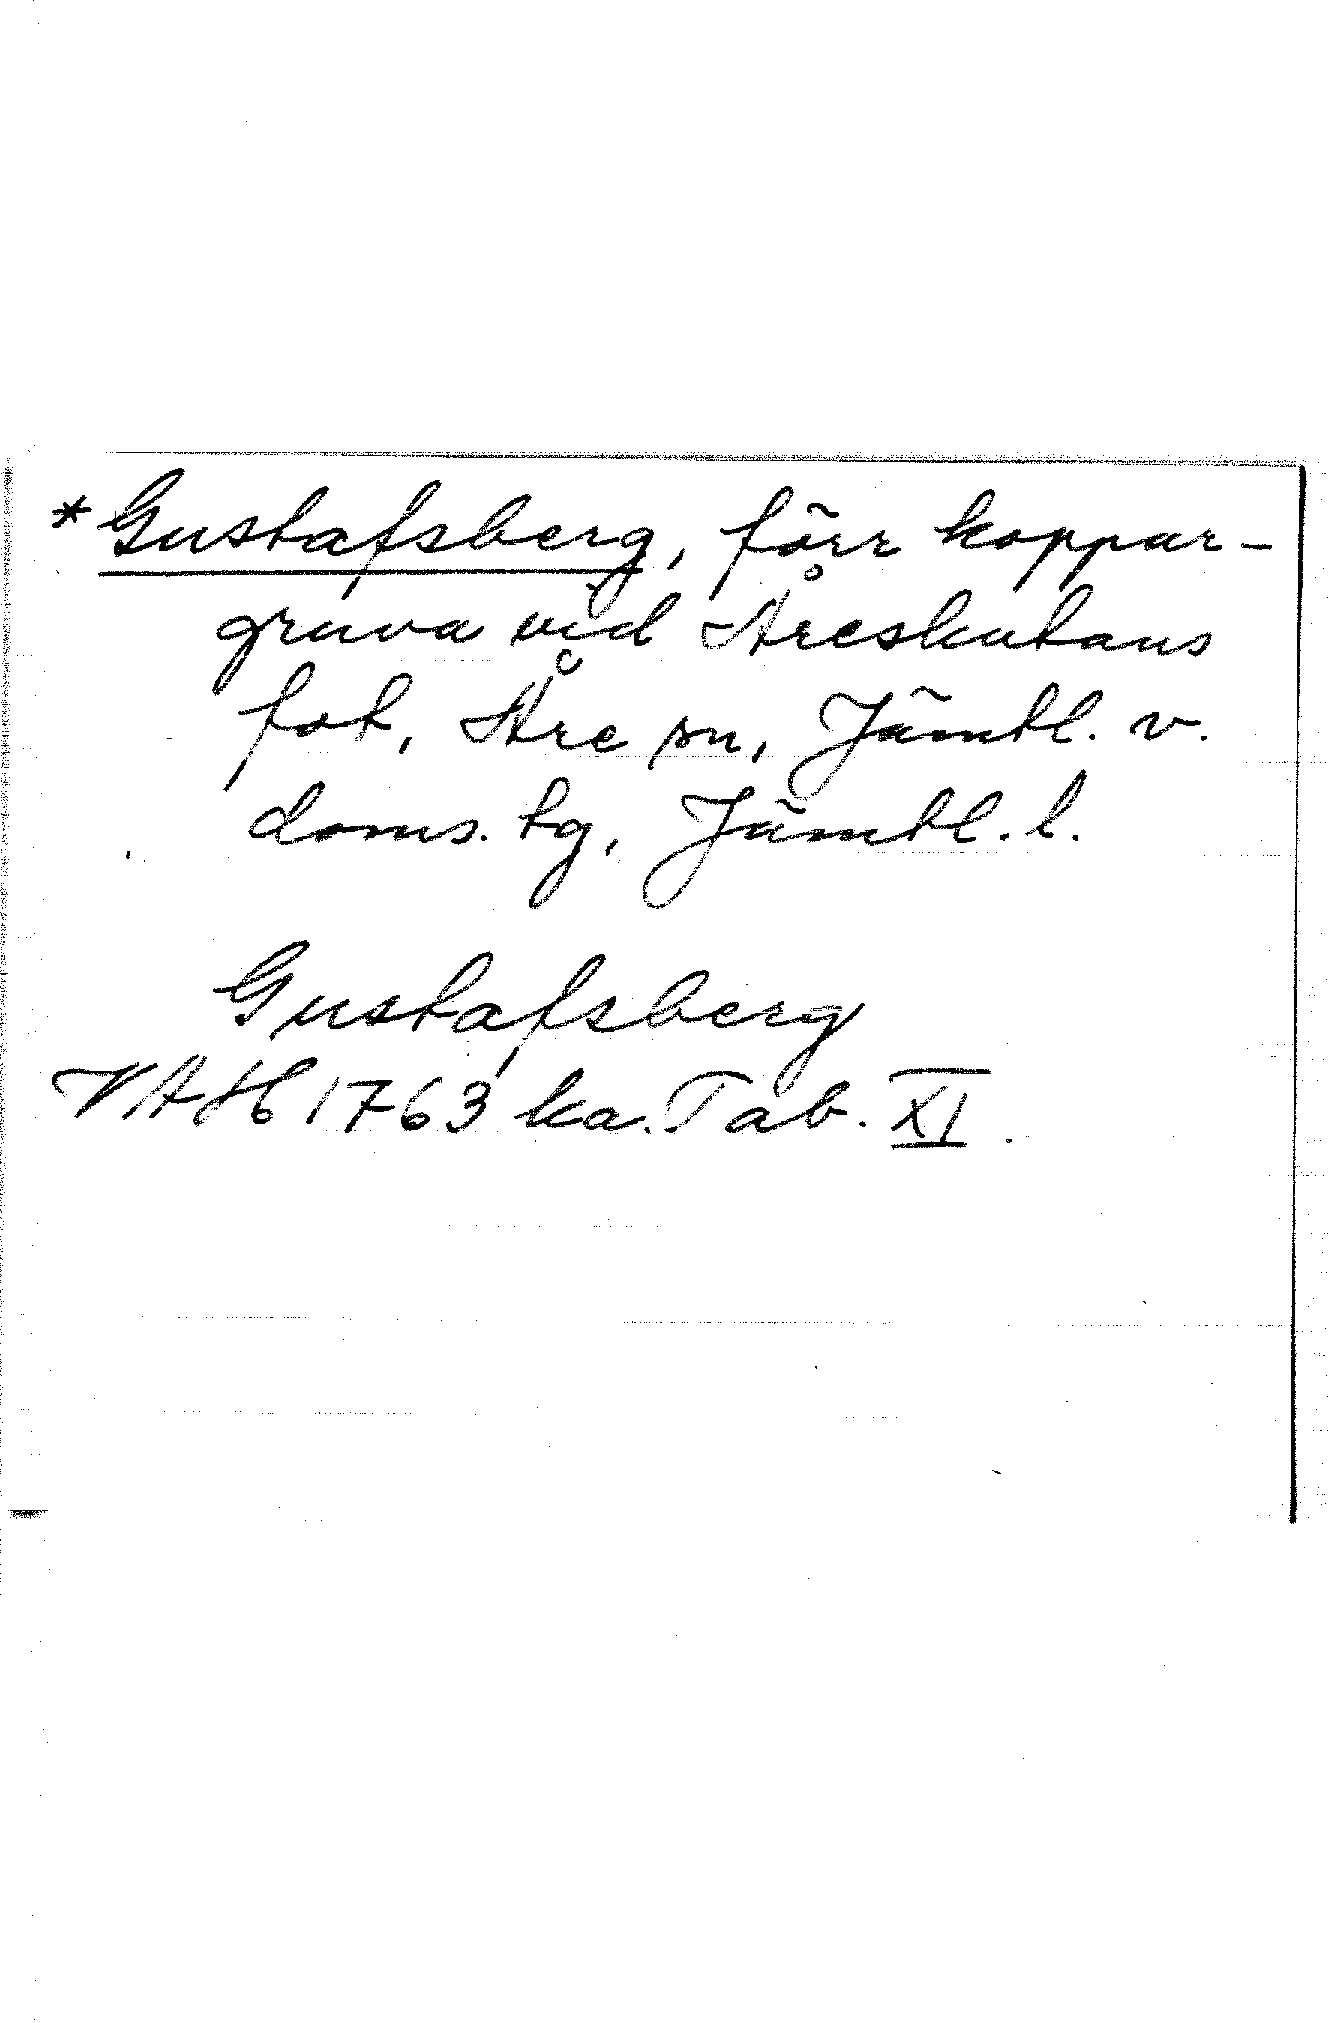 *Gustafsberg, förr koppar-
gruva vid Åreskutans
fot, Åre sn, Jämtl. v.
doms. tg, Jämtl. l.
Gustafsberg
VAH 1763 ka. Tab. XI.